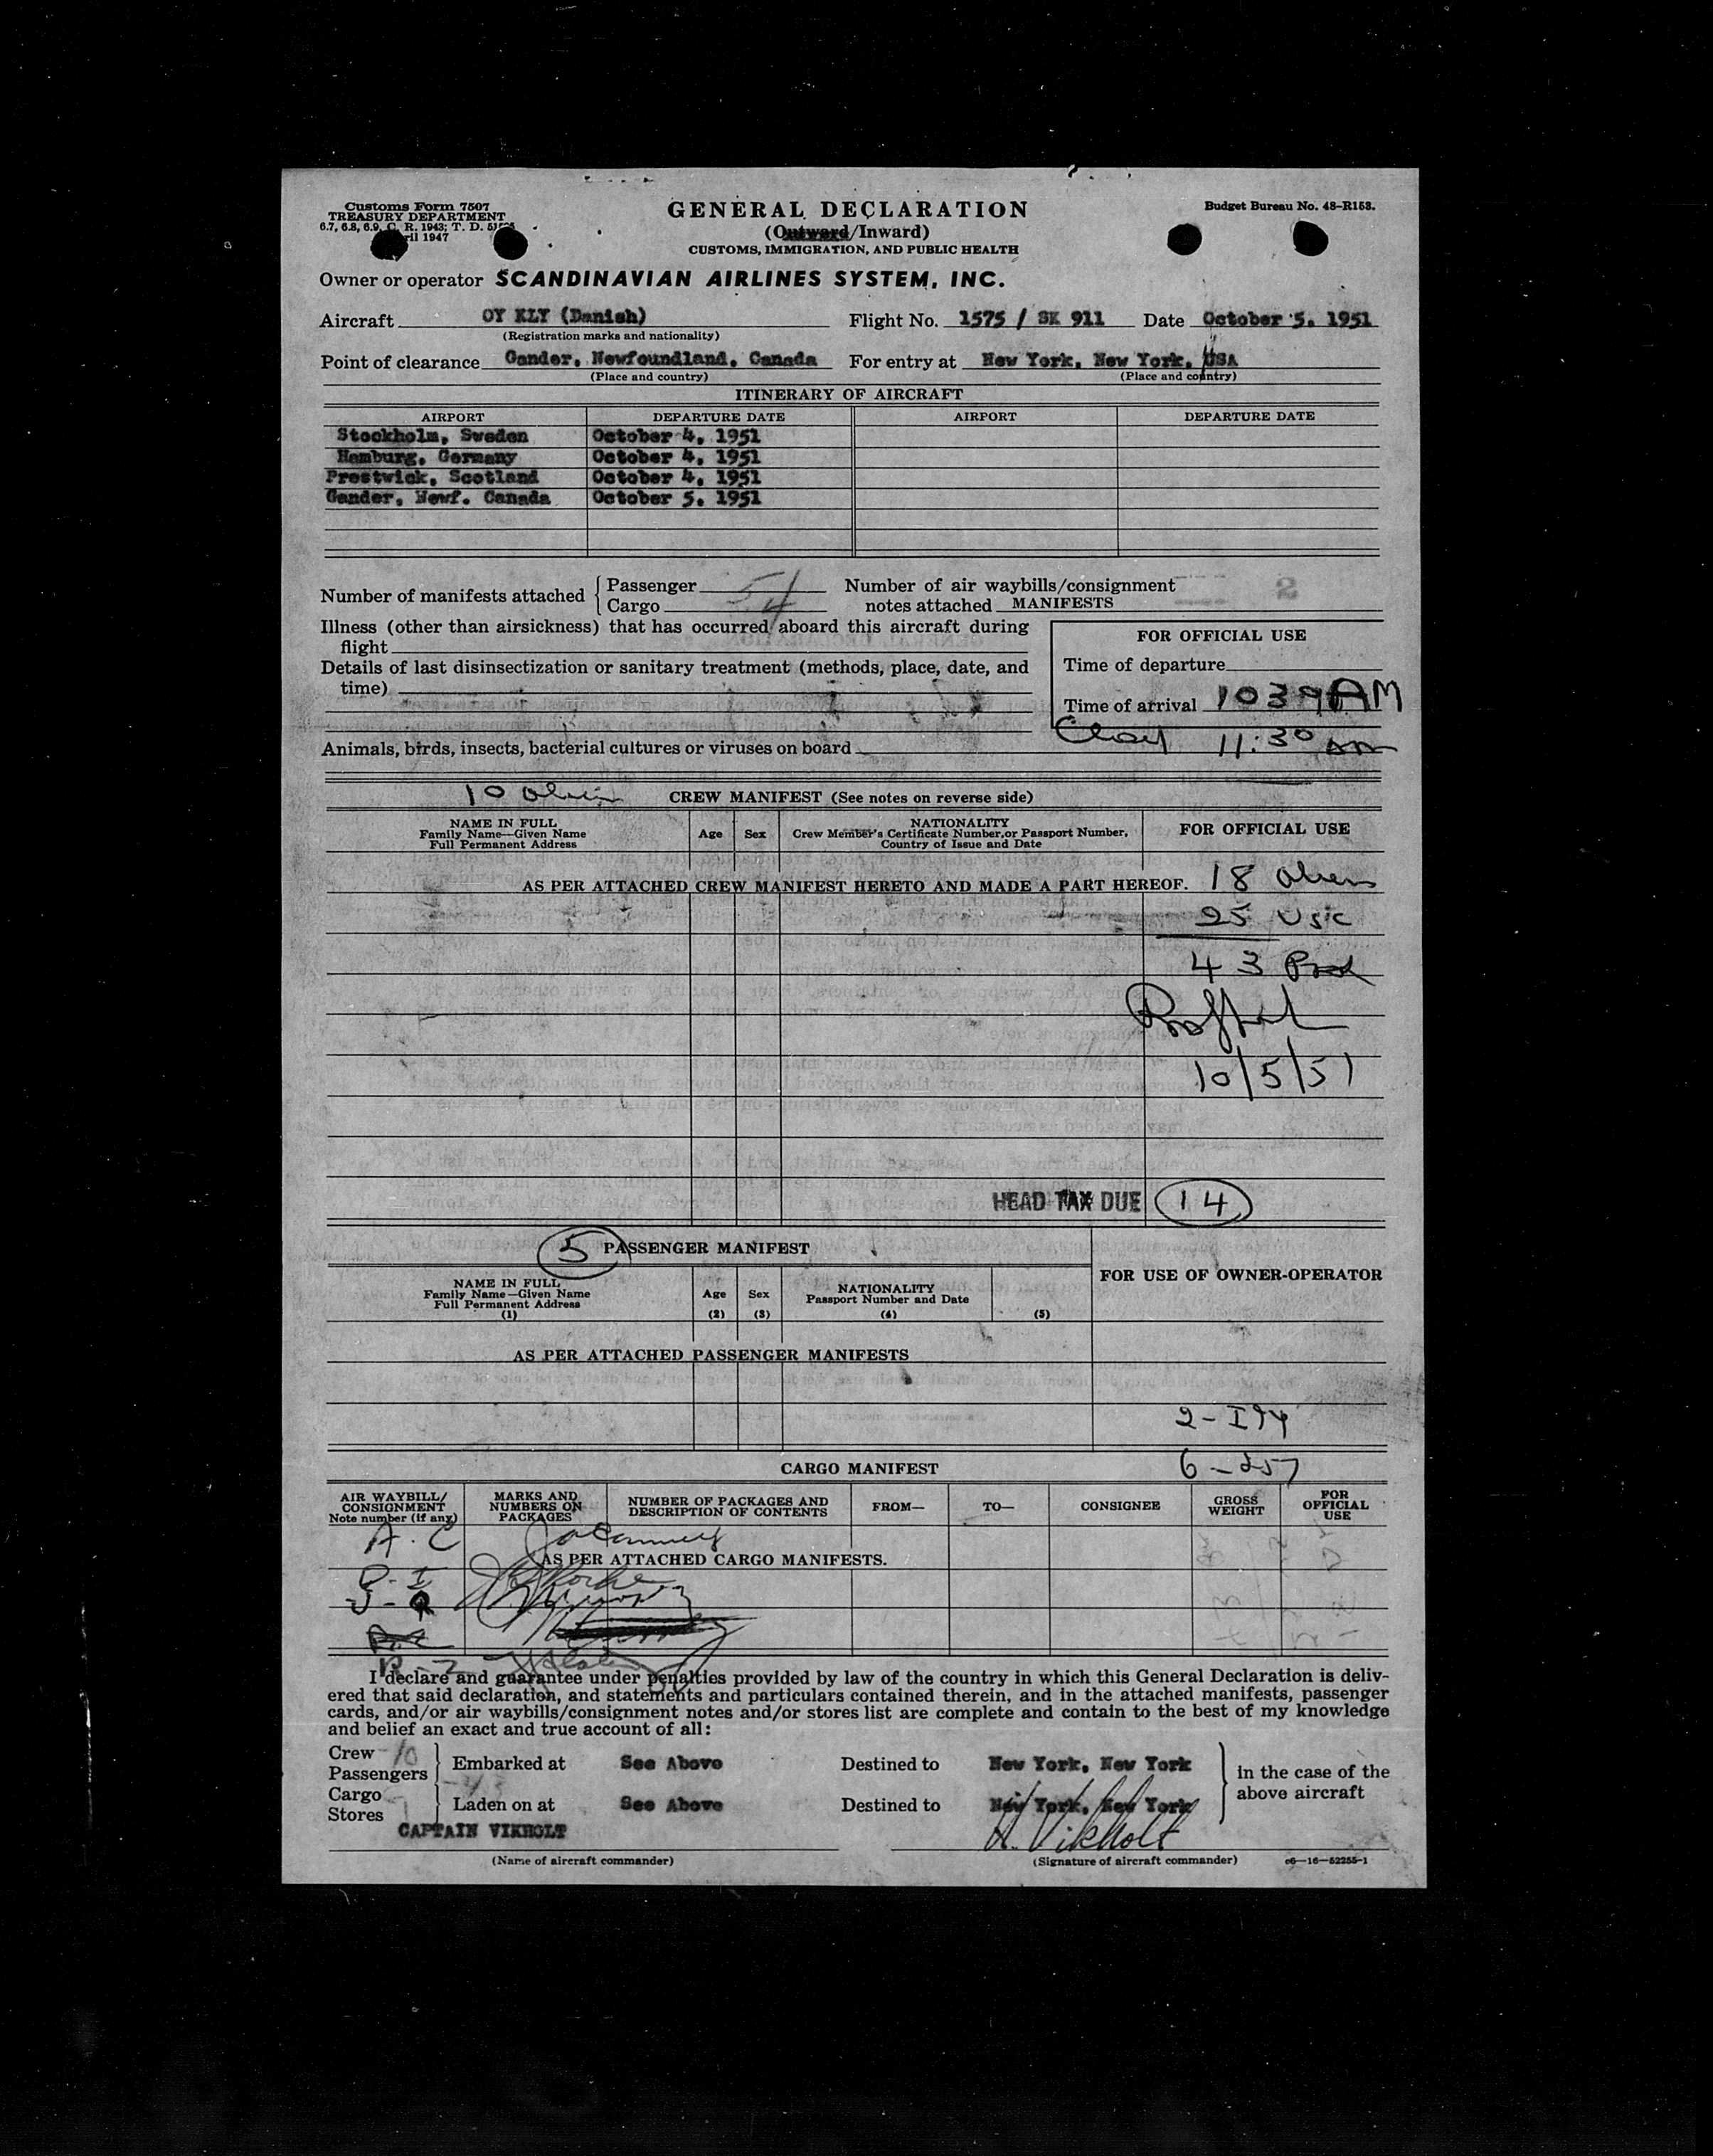 Customs Form 7507
TREASURY DEPARTMENT
6.7, 6.8, 6.9, C. R. 1943; T. D.
1947
GENERAL DECLARATION
(Outward/Inward)
CUSTOMS, IMMIGRATION, AND PUBLIC HEALTH
Budget Bureau No. 48-R153.
Owner or operator SCANDINAVIAN AIRLINES SYSTEM, INC.
Aircraft OY KLY (Danish) Flight No. 1575 / SK 911 Date October 5, 1951
(Registration marks and nationality)
Point of clearance Gander, Newfoundland, Canada For entry at New York, New York, USA
(Place and country) (Place and country)
ITINERARY OF AIRCRAFT
AIRPORT DEPARTURE DATE AIRPORT DEPARTURE DATE
Stockholm, Sweden October 4, 1951
Hamburg, Germany October 4, 1951
Prestwick, Scotland October 4, 1951
Gander, Newf. Canada October 5, 1951
Number of manifests attached { Passenger 5 Number of air waybills/consignment
Cargo 4 notes attached MANIFESTS 2
Illness (other than airsickness) that has occurred aboard this aircraft during
flight
FOR OFFICIAL USE
Details of last disinsectization or sanitary treatment (methods, place, date, and
time)
Time of departure
Time of arrival 1039 AM
11:30 am
Animals, birds, insects, bacterial cultures or viruses on board
10 CREW MANIFEST (See notes on reverse side)
NAME IN FULL
Family Name—Given Name
Full Permanent Address
Age Sex
NATIONALITY
Crew Member's Certificate Number, or Passport Number,
Country of Issue and Date
FOR OFFICIAL USE
AS PER ATTACHED CREW MANIFEST HERETO AND MADE A PART HEREOF. 18 aliens
25 USC
43
10/5/51
HEAD TAX DUE 14
5 PASSENGER MANIFEST
FOR USE OF OWNER-OPERATOR
NAME IN FULL
Family Name—Given Name
Full Permanent Address
(1)
Age
(2)
Sex
(3)
NATIONALITY
Passport Number and Date
(4)
(5)
AS PER ATTACHED PASSENGER MANIFESTS
2 - I94
6 - 257
CARGO MANIFEST
AIR WAYBILL/
CONSIGNMENT
Note number (if any)
MARKS AND
NUMBERS ON
PACKAGES
NUMBER OF PACKAGES AND
DESCRIPTION OF CONTENTS
FROM— TO— CONSIGNEE
GROSS
WEIGHT
FOR
OFFICIAL
USE
A - C
AS PER ATTACHED CARGO MANIFESTS.
D - I
J - Q
R - Z
I declare and guarantee under penalties provided by law of the country in which this General Declaration is deliv-
ered that said declaration, and statements and particulars contained therein, and in the attached manifests, passenger
cards, and/or air waybills/consignment notes and/or stores list are complete and contain to the best of my knowledge
and belief an exact and true account of all:
Crew 10
Passengers 43
Embarked at See Above Destined to New York, New York
in the case of the
above aircraft
Cargo
Stores
Laden on at See Above Destined to New York, New York
CAPTAIN VIKHOLT H. Vikholt
(Name of aircraft commander) (Signature of aircraft commander) c6—16—52255-1